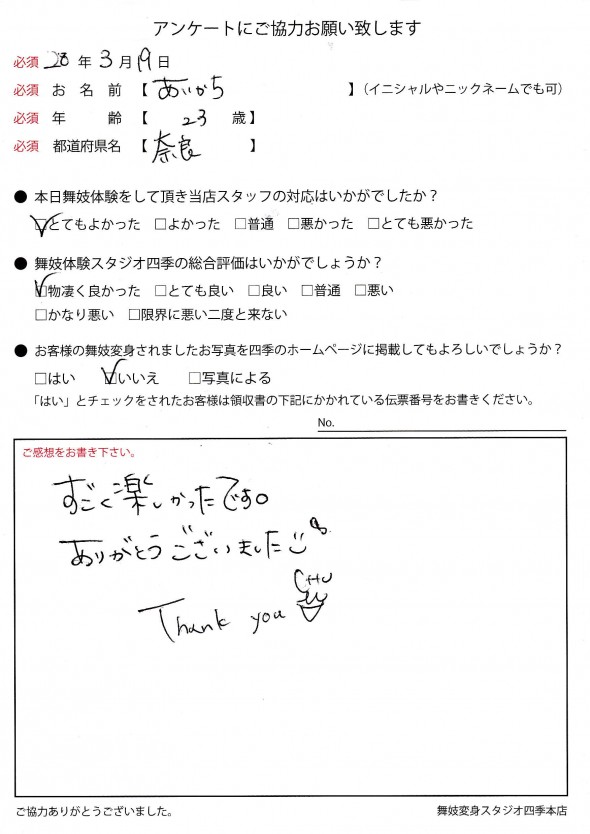 アンケートにご協力お願い致します
必須 20 年 3 月 19 日
必須 お名前 【 あいから 】(イニシャルやニックネームでも可)
必須 年 齢 【 23 歳 】
必須 都道府県名 【 奈良 】
● 本日舞妓体験をして頂き当店スタッフの対応はいかがでしたか？
☑とてもよかった □よかった □普通 □悪かった □とても悪かった
● 舞妓体験スタジオ四季の総合評価はいかがでしょうか？
☑物凄く良かった □とても良い □良い □普通 □悪い
□かなり悪い □限界に悪い二度と来ない
● お客様の舞妓変身されましたお写真を四季のホームページに掲載してもよろしいでしょうか？
□はい ☑いいえ □写真による
「はい」とチェックをされたお客様は領収書の下記にかかれている伝票番号をお書きください。
No.
ご感想をお書き下さい。
すごく楽しかったです。
ありがとうございました
CHU
Thank you
ご協力ありがとうございました。
舞妓変身スタジオ四季本店